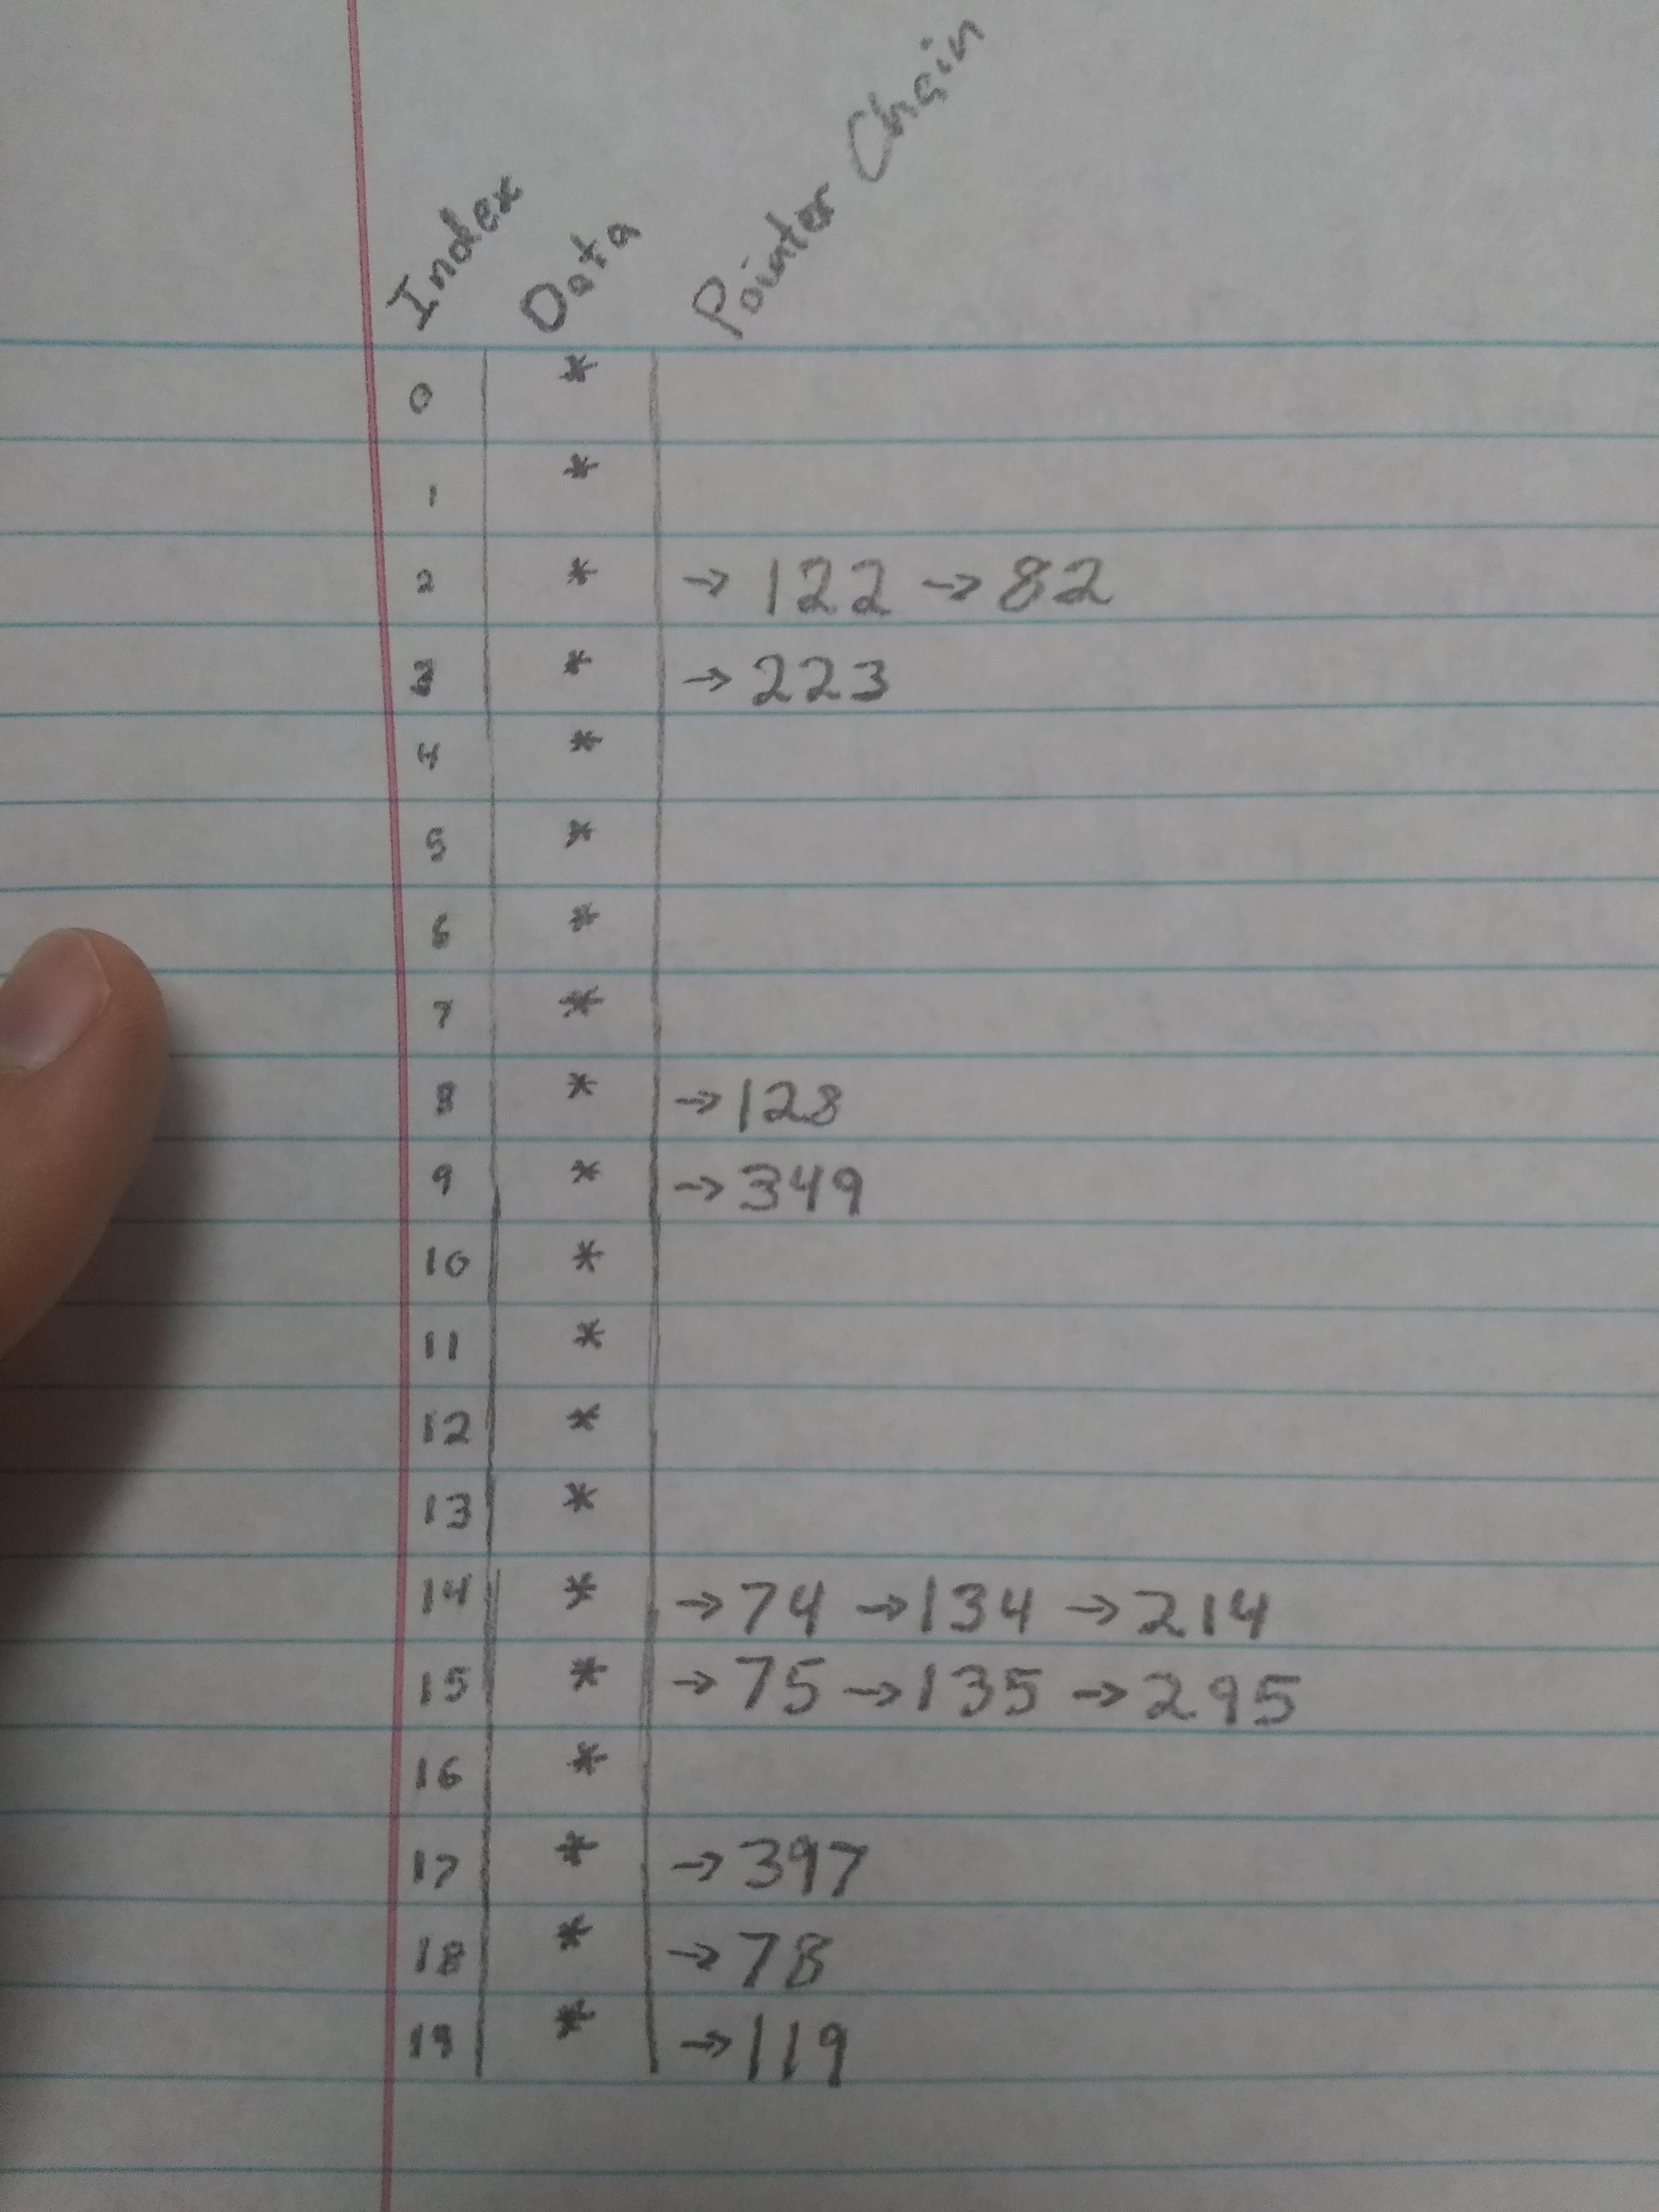 Index Data Pointer Chain
0 *
1 *
2 * → 122 → 82
3 * → 223
4 *
5 *
6 *
7 *
8 * → 128
9 * → 349
10 *
11 *
12 *
13 *
14 * → 74 → 134 → 214
15 * → 75 → 135 → 295
16 *
17 * → 397
18 * → 78
19 * → 119